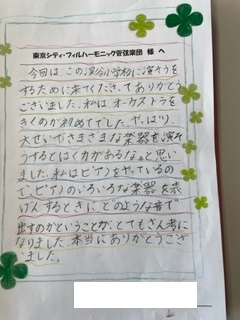 東京シティ・フィルハーモニック管弦楽団 様 へ
今回は、この深谷小学校に演そうを
するために来てくださってありがとう
ございました。私は、オーケストラを
きくのが初めてでした。やっぱり、
大ぜいでさまざまな楽器を演そ
うするとはく力があるなぁと思い
ました。私はピアノをやっているの
で、ピアノのいろいろな楽器を
けんするときに、どのような音で
出すのかということが、とてもさん考に
なりました。本当にありがとうござ
いました。